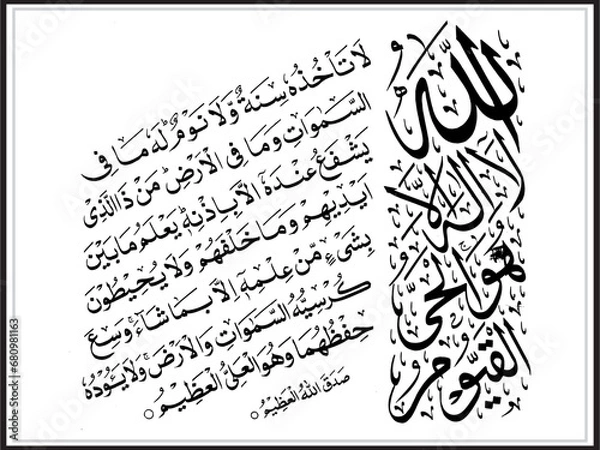 الله
لا اله الا
هو الحی
القیوم
لَا تَاْخُذُهٗ سِنَةٌ وَّلَا نَوْمٌ ؕ لَهٗ مَا فِی
السَّمٰوٰتِ وَمَا فِی الْاَرْضِ ؕ مَنْ ذَا الَّذِیْ
یَشْفَعُ عِنْدَهٗۤ اِلَّا بِاِذْنِهٖ ؕ یَعْلَمُ مَا بَیْنَ
اَیْدِیْهِمْ وَمَا خَلْفَهُمْ وَلَا یُحِیْطُوْنَ
بِشَیْءٍ مِّنْ عِلْمِهٖۤ اِلَّا بِمَا شَآءَ ۚ وَسِعَ
كُرْسِیُّهُ السَّمٰوٰتِ وَالْاَرْضَ ۚ وَلَا یَـُٔوْدُهٗ
حِفْظُهُمَا وَهُوَ الْعَلِیُّ الْعَظِیْمُ ○
صَدَقَ اللهُ الْعَظِیْمُ ○
Adobe Stock | #680981163